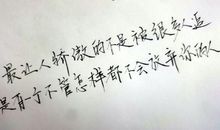 最让人骄傲的不是被很多人追
是有个不管怎样都不会放弃你的人